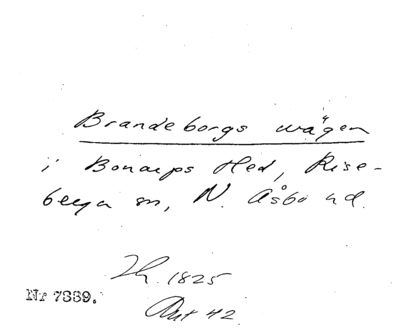 Brandeborgs wägen
i Bonarps Hed, Rise-
berga sn, N. Åsbo hd.
1825
Nr 7889.
42